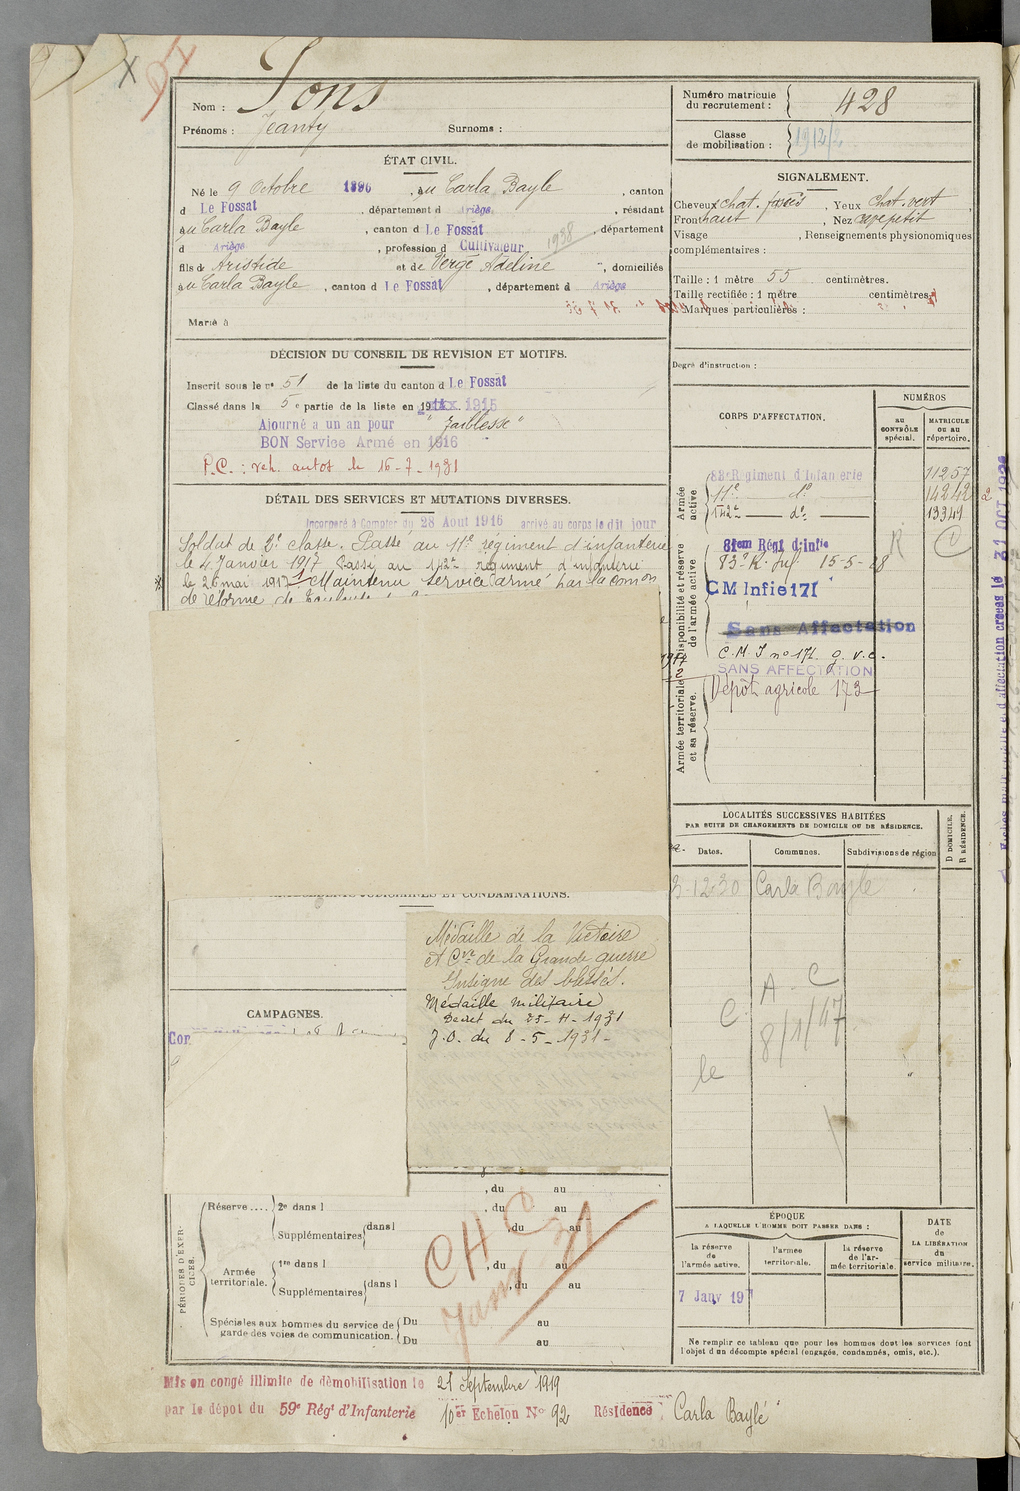 Nom : Sons
Prénoms : Jeanty Surnoms :
Numéro matricule du recrutement : 428
Classe de mobilisation : 1912/2
ÉTAT CIVIL.
Né le 9 Octobre 1896, au Carla Bayle, canton
d Le Fossat, département d Ariège, résidant
au Carla Bayle, canton d Le Fossat, département
d Ariège, profession d Cultivateur 1938
fils de Aristide et de Vergé Adeline, domiciliés
au Carla Bayle, canton d Le Fossat, département d Ariège
Marié à
SIGNALEMENT.
Cheveux chat. foncés, Yeux chat. vert
Front haut, Nez petit
Visage , Renseignements physionomiques
complémentaires :
Taille : 1 mètre 55 centimètres.
Taille rectifiée : 1 mètre centimètres.
Marques particulières :
Degré d'instruction :
DÉCISION DU CONSEIL DE REVISION ET MOTIFS.
Inscrit sous le n° 51 de la liste du canton d Le Fossat
Classé dans la 5e partie de la liste en 1915
Ajourné a un an pour "faiblesse"
BON Service Armé en 1916
P.C. : veh. autos le 16-7-1931
DÉTAIL DES SERVICES ET MUTATIONS DIVERSES.
Incorporé à Compter du 28 Aout 1916 arrivé au corps le dit jour
Soldat de 2e classe. Passé au 11e régiment d'infanterie
le 4 Janvier 1917 Passé au 142e régiment d'infanterie
le 26 mai 1917 Maintenu service armé par la comon
de réforme de Toulouse
CORPS D'AFFECTATION.
NUMÉROS
AU CONTRÔLE spécial.
MATRICULE OU AU répertoire.
Armée active
83e Régiment d'Infanterie 11257
11e d° 14242
142e d° 13341
Disponibilité et réserve de l'armée active
81em Régt d'infie
83e R. Inf. 15-5-28
R C
CM Infie 171
Sans Affectation
C.M.I n° 171. g.v.c.
SANS AFFECTATION
Armée territoriale et sa réserve.
Dépôt agricole 173
31 OCT
LOCALITÉS SUCCESSIVES HABITÉES
PAR SUITE DE CHANGEMENTS DE DOMICILE OU DE RÉSIDENCE.
Dates. Communes. Subdivisions de région
D DOMICILE. R RÉSIDENCE.
3-12-30 Carla Bayle
A. C
C.
8/1/47
le
ANTÉCÉDENTS JUDICIAIRES ET CONDAMNATIONS.
Médaille de la Victoire
et Cve de la Grande guerre
Insigne des blessés.
Médaille militaire
Decret du 25-4-1931
J.O. du 8-5-1931-
CAMPAGNES.
PÉRIODES D'EXERCICES.
, du au
Réserve .... 2e dans l , du au
Supplémentaires dans l , du au
Armée territoriale. 1re dans l , du au
Supplémentaires dans l , du au
Spéciales aux hommes du service de garde des voies de communication. Du au
Du au
CHC
Janv 31
ÉPOQUE
A LAQUELLE L'HOMME DOIT PASSER DANS :
la réserve de l'armée active.
l'armée territoriale.
la réserve de l'armée territoriale.
DATE de LA LIBÉRATION du service militaire.
7 Janv 19
Ne remplir ce tableau que pour les hommes dont les services font
l'objet d'un décompte spécial (engagés, condamnés, omis, etc.).
Mis en congé illimité de démobilisation le 21 Septembre 1919
par le dépôt du 59e Régt d'Infanterie 10er Echelon N° 92 Résidence : Carla Baylé